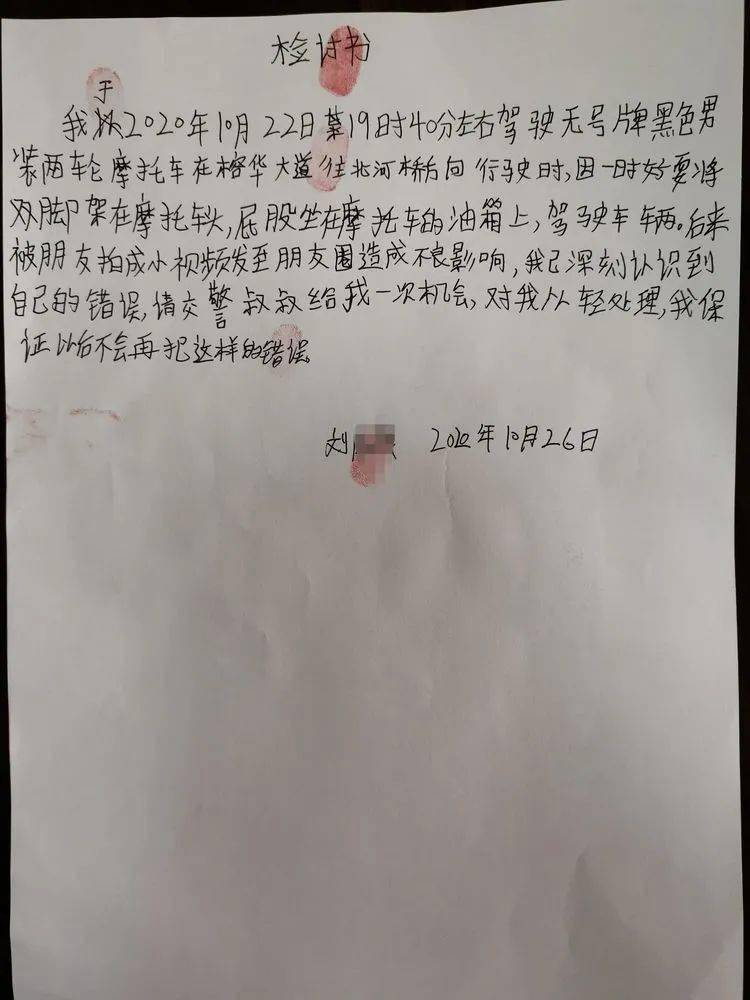 检讨书
于
我2020年10月22日19时40分左右驾驶无号牌黑色男
装两轮摩托车在榕华大道往北河桥方向行驶时,因一时好耍将
双脚架在摩托车头,屁股坐在摩托车的油箱上,驾驶车辆。后来
被朋友拍成小视频发至朋友圈造成不良影响,我已深刻认识到
自己的错误,请交警叔叔给我一次机会,对我从轻处理,我保
证以后不会再犯这样的错误。
刘 2020年10月26日